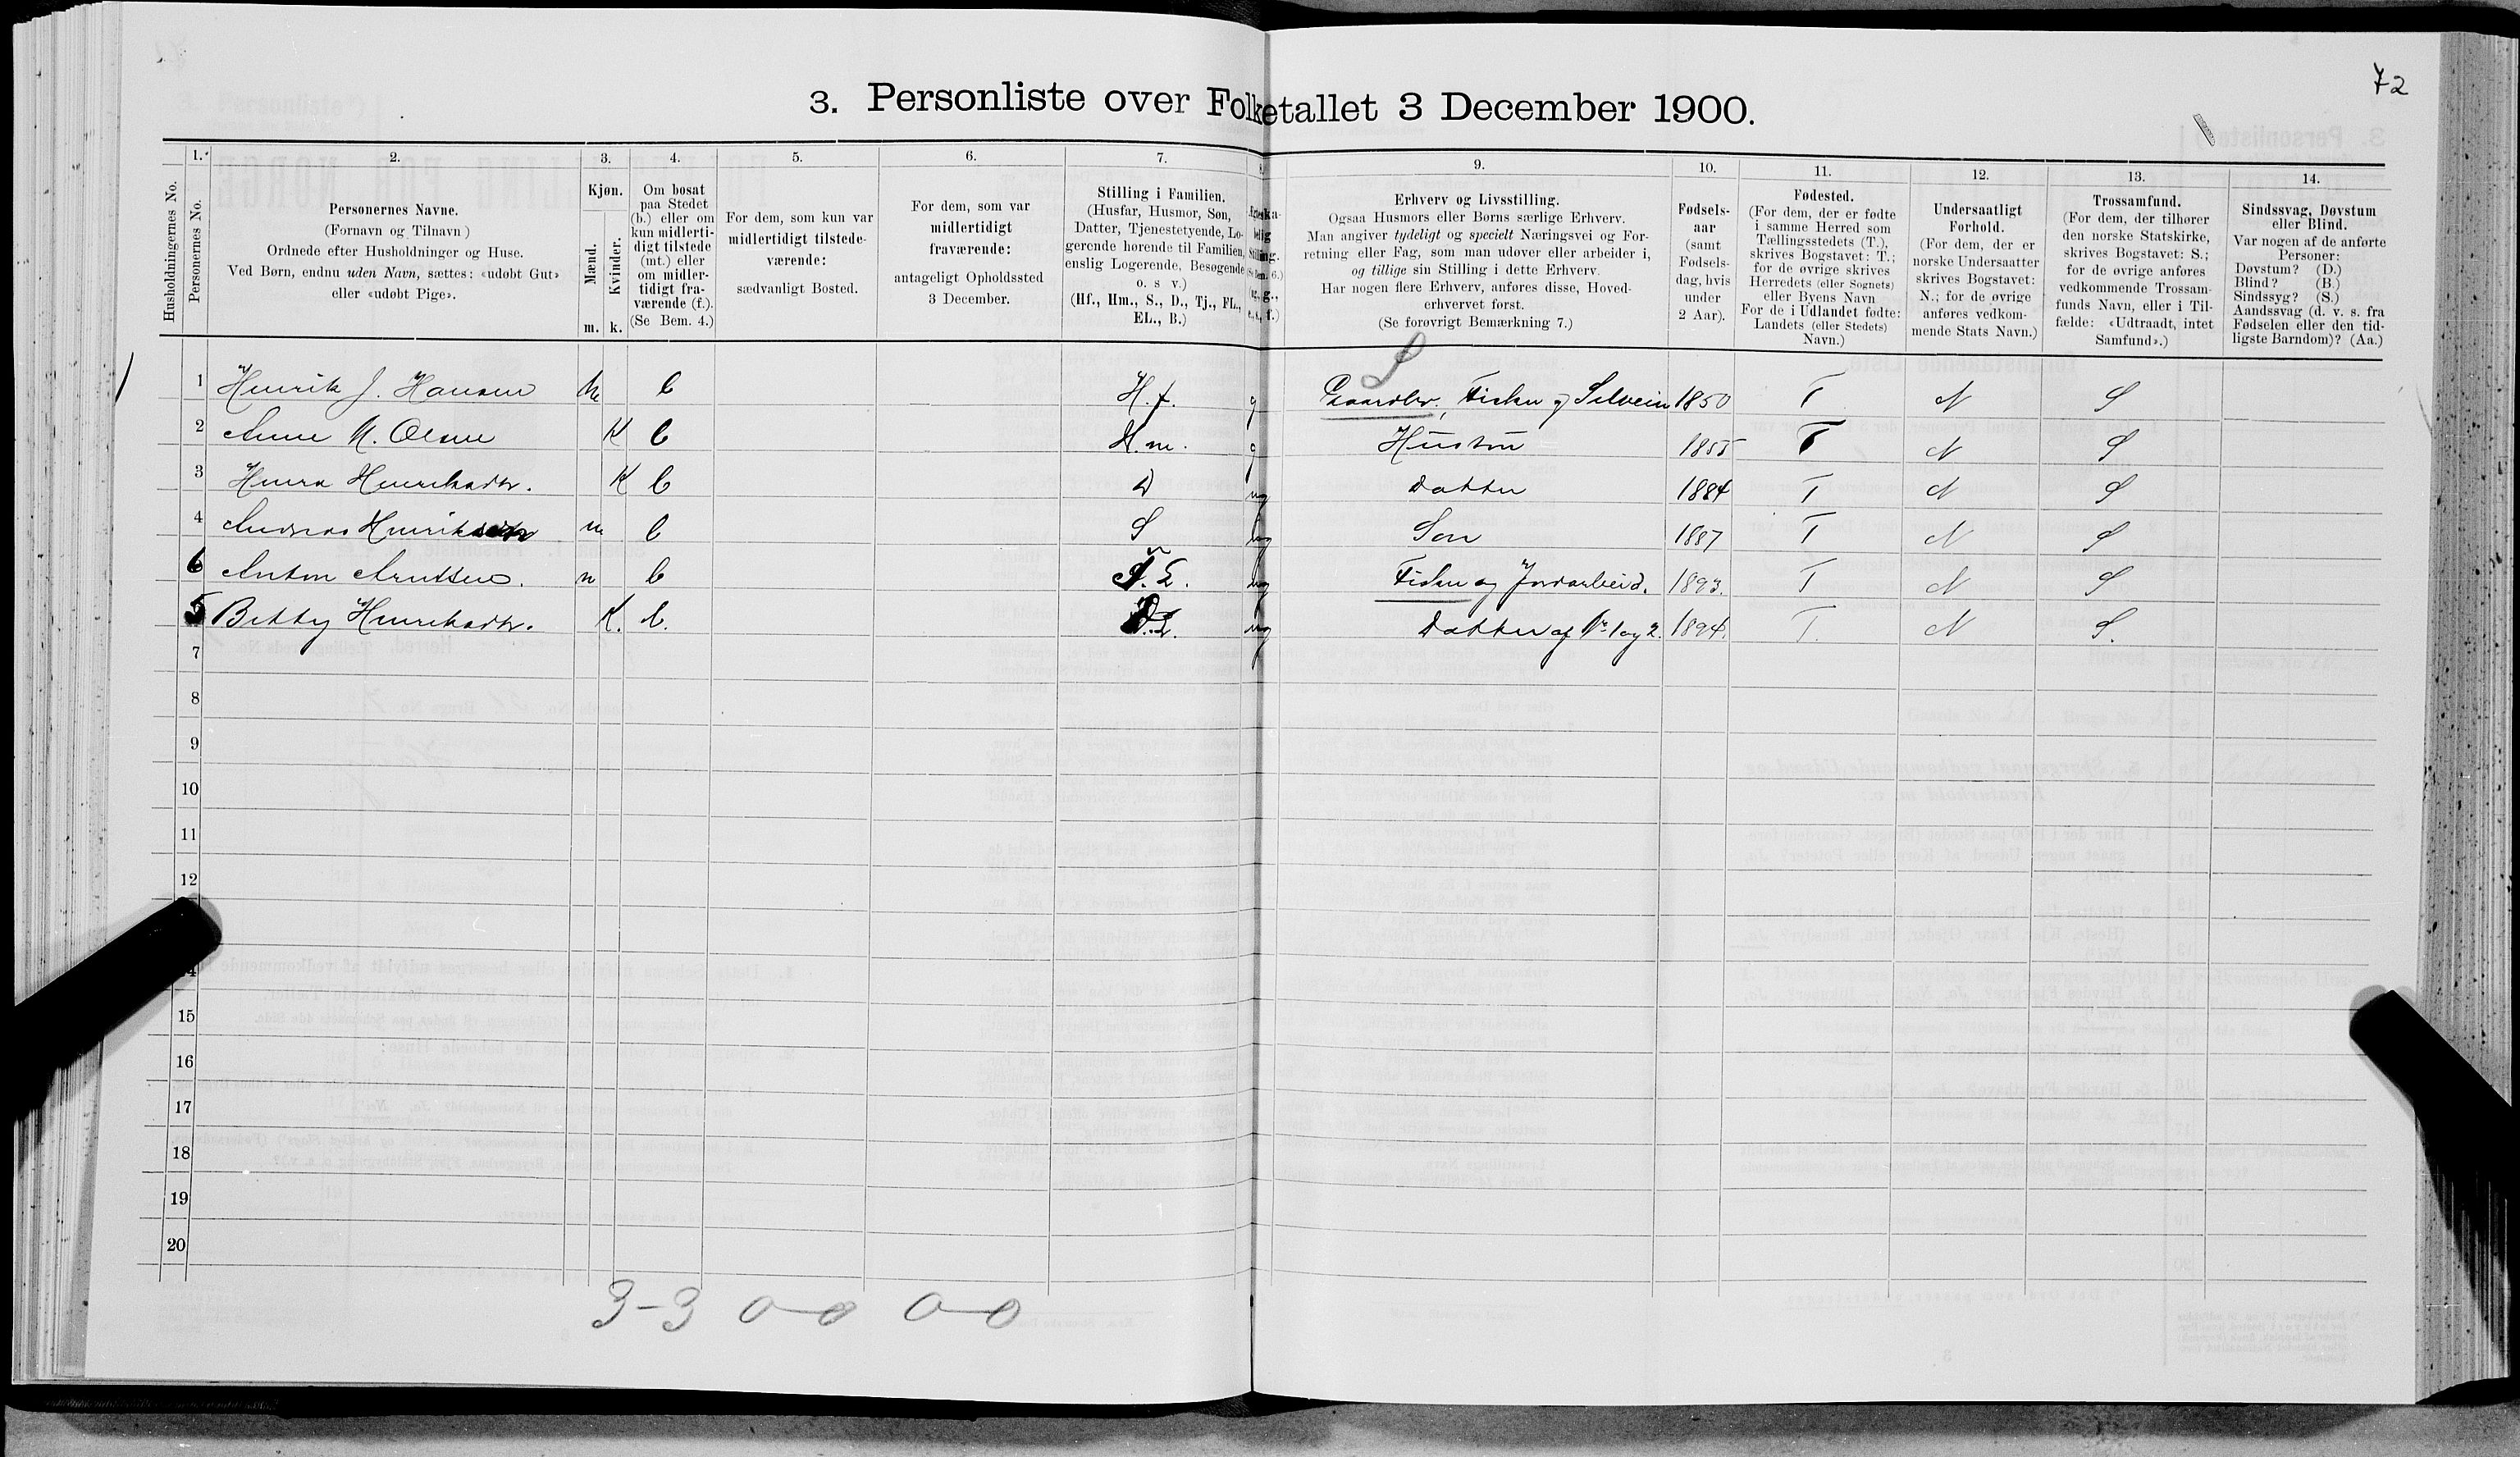 72
3. Personliste over Folketallet 3 December 1900.
1. 2. 3. 4. 5. 6. 7. 9. 10. 11. 12. 13. 14.
Husholdningernes No.
Personernes No.
Personernes Navne.
(Fornavn og Tilnavn)
Ordnede efter Husholdninger og Huse.
Ved Børn, endnu uden Navn, sættes: «udøbt Gut»
eller «udøbt Pige».
Kjøn.
Mænd.
Kvinder.
m. k.
Om bosat
paa Stedet
(b.) eller om
kun midlerti-
digt tilstede
(mt.) eller
om midler-
tidigt fra-
værende (f.).
(Se Bem. 4.)
For dem, som kun var
midlertidigt tilstede-
værende:
sædvanligt Bosted.
For dem, som var
midlertidigt
fraværende:
antageligt Opholdssted
3 December.
Stilling i Familien.
(Husfar, Husmor, Søn,
Datter, Tjenestetyende, Lo-
gerende hørende til Familien,
enslig Logerende, Besøgende
o. s v.)
(Hf., Hm., S., D., Tj., FL.,
EL., B.)
Erhverv og Livsstilling.
Ogsaa Husmors eller Børns særlige Erhverv.
Man angiver tydeligt og specielt Næringsvei og For-
retning eller Fag, som man udøver eller arbeider i,
og tillige sin Stilling i dette Erhverv.
Har nogen flere Erhverv, anføres disse, Hoved-
erhvervet først.
(Se forøvrigt Bemærkning 7.)
Fødsels-
aar
(samt
Fødsels-
dag, hvis
under
2 Aar).
Fødested.
(For dem, der er fødte
i samme Herred som
Tællingsstedets (T.),
skrives Bogstavet: T.;
for de øvrige skrives
Herredets (eller Sognets)
eller Byens Navn
For de i Udlandet fødte:
Landets (eller Stedets)
Navn.)
Undersaatligt
Forhold.
(For dem, der er
norske Undersaatter
skrives Bogstavet:
N.; for de øvrige
anføres vedkom-
mende Stats Navn.)
Trossamfund.
(For dem, der tilhører
den norske Statskirke,
skrives Bogstavet: S.;
for de øvrige anføres
vedkommende Trossam-
funds Navn, eller i Til-
fælde: «Udtraadt, intet
Samfund».)
Sindssvag, Døvstum
eller Blind.
Var nogen af de anførte
Personer:
Døvstum? (D.)
Blind? (B.)
Sindssyg? (S.)
Aandssvag (d. v. s. fra
Fødselen eller den tid-
ligste Barndom)? (Aa.)
1 Henrik J. Hansen m b H.f. g Gaardbr., Fisker og Selveier 1850 T N S
2 Anne M. Olsen K b H.m. g Hustru 1855 T N S
3 Henrikadtr. K b D ug Datter 1884 T N S
4 Andreas m b S ug Søn 1887 T N S
6 Anton Arntsen. m b ug Fisker og Jordarbeid. 1893. T N S
5 Betty Henriksdtr. K. b. ug Datter af No 1 og 2. 1894. T. N S.
7
8
9
10
11
12
15
16
17
18
19
20
3-3 0-0 0-0